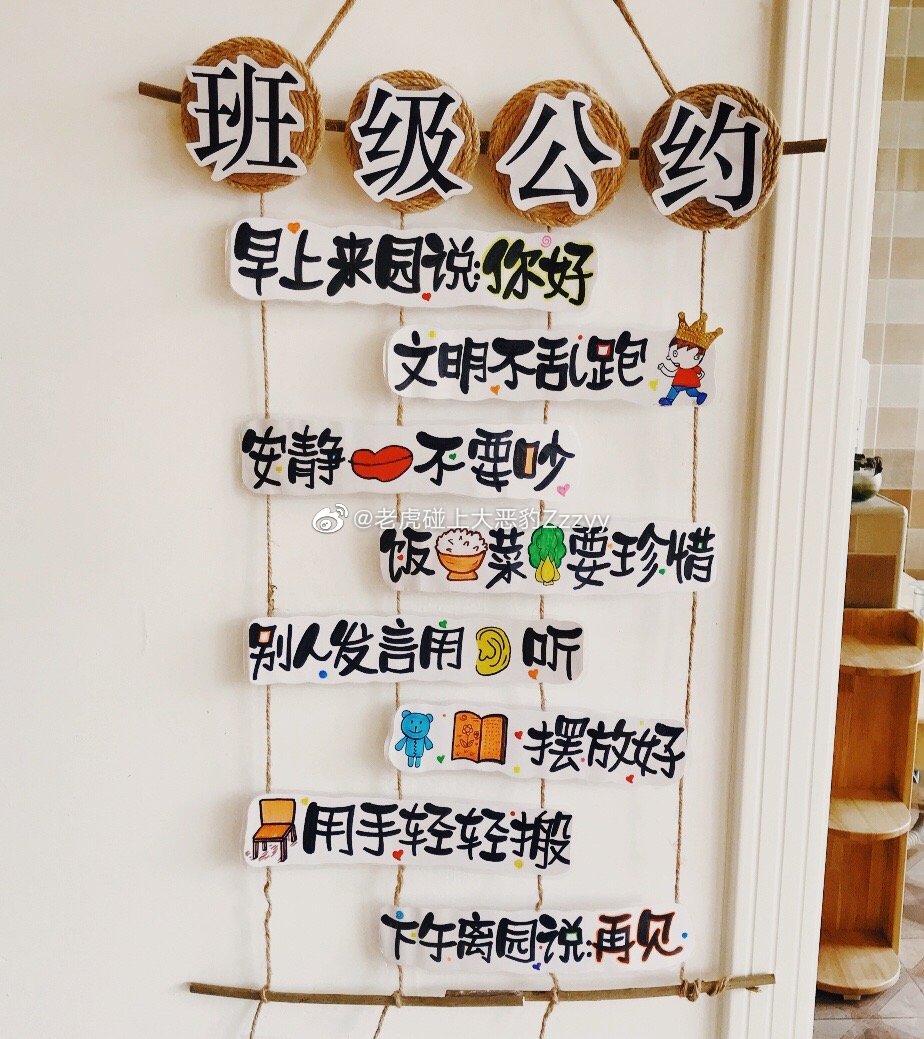 班级公约
早上来园说:你好
文明不乱跑
安静不要吵
@老虎碰上大恶豹Zzzyy
饭菜要珍惜
别人发言用听
摆放好
用手轻轻搬
下午离园说:再见